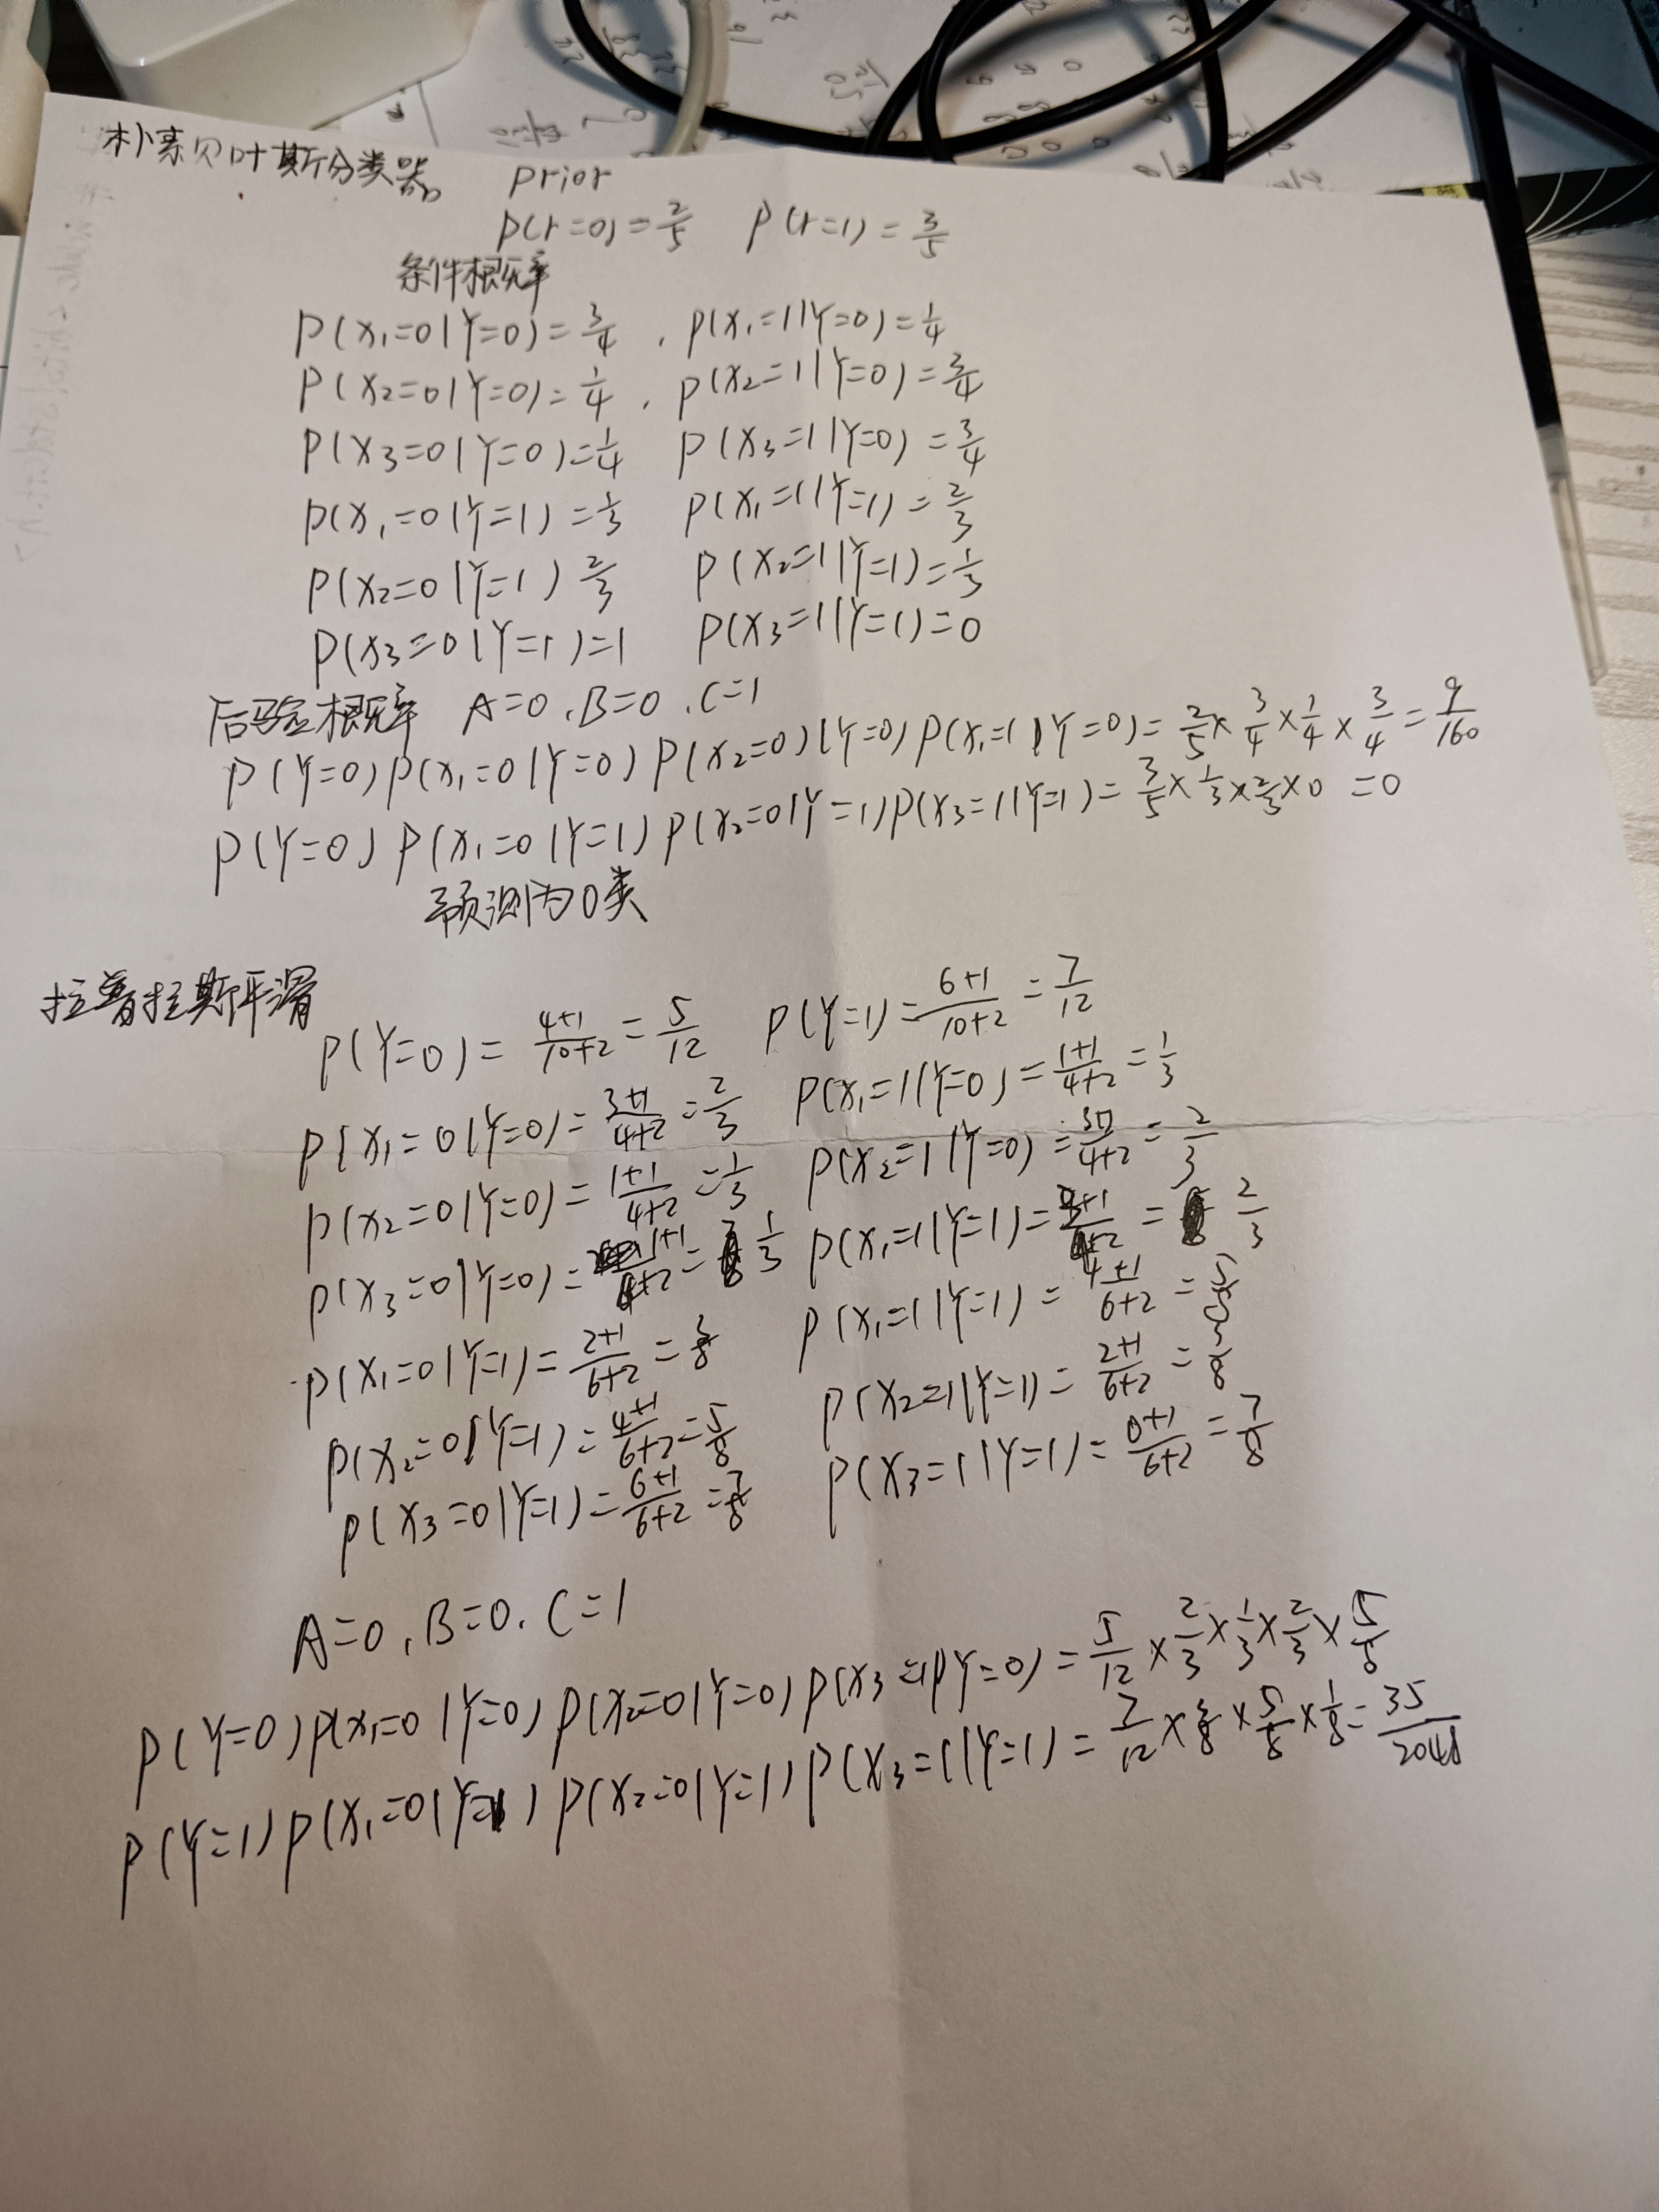 朴素贝叶斯分类器 prior
P(Y=0)=2/5 P(Y=1)=3/5
条件概率
P(X₁=0|Y=0)=3/4 , P(X₁=1|Y=0)=1/4
P(X₂=0|Y=0)=1/4 , P(X₂=1|Y=0)=3/4
P(X₃=0|Y=0)=1/4 P(X₃=1|Y=0)=3/4
P(X₁=0|Y=1)=1/3 P(X₁=1|Y=1)=2/3
P(X₂=0|Y=1) 2/3 P(X₂=1|Y=1)=1/3
P(X₃=0|Y=1)=1 P(X₃=1|Y=1)=0
后验概率 A=0,B=0,C=1
P(Y=0)P(X₁=0|Y=0)P(X₂=0)|Y=0)P(X₁=1|Y=0)=2/5×3/4×1/4×3/4=9/160
P(Y=0)P(X₁=0|Y=1)P(X₂=0|Y=1)P(X₃=1|Y=1)=3/5×1/3×2/3×0=0
预测为0类
拉普拉斯平滑
P(Y=0)=4+1/10+2=5/12 P(Y=1)=6+1/10+2=7/12
P(X₁=0|Y=0)=3+1/4+2=2/3 P(X₁=1|Y=0)=1+1/4+2=1/3
P(X₂=0|Y=0)=1+1/4+2=1/3 P(X₂=1|Y=0)=3+1/4+2=2/3
P(X₃=0|Y=0)=1+1/4+2=1/3 P(X₁=1|Y=1)=3+1/4+2=2/3
P(X₁=0|Y=1)=2+1/6+2=3/8 P(X₁=1|Y=1)=4+1/6+2=5/8
P(X₂=0|Y=1)=4+1/6+2=5/8 P(X₂=1|Y=1)=2+1/6+2=3/8
P(X₃=0|Y=1)=6+1/6+2=7/8 P(X₃=1|Y=1)=0+1/6+2=7/8
A=0,B=0,C=1
P(Y=0)P(X₁=0|Y=0)P(X₂=0|Y=0)P(X₃=1|Y=0)=5/12×2/3×1/3×2/3×5/8
P(Y=1)P(X₁=0|Y=1)P(X₂=0|Y=1)P(X₃=1|Y=1)=7/12×3/8×5/8×1/8=35/2048